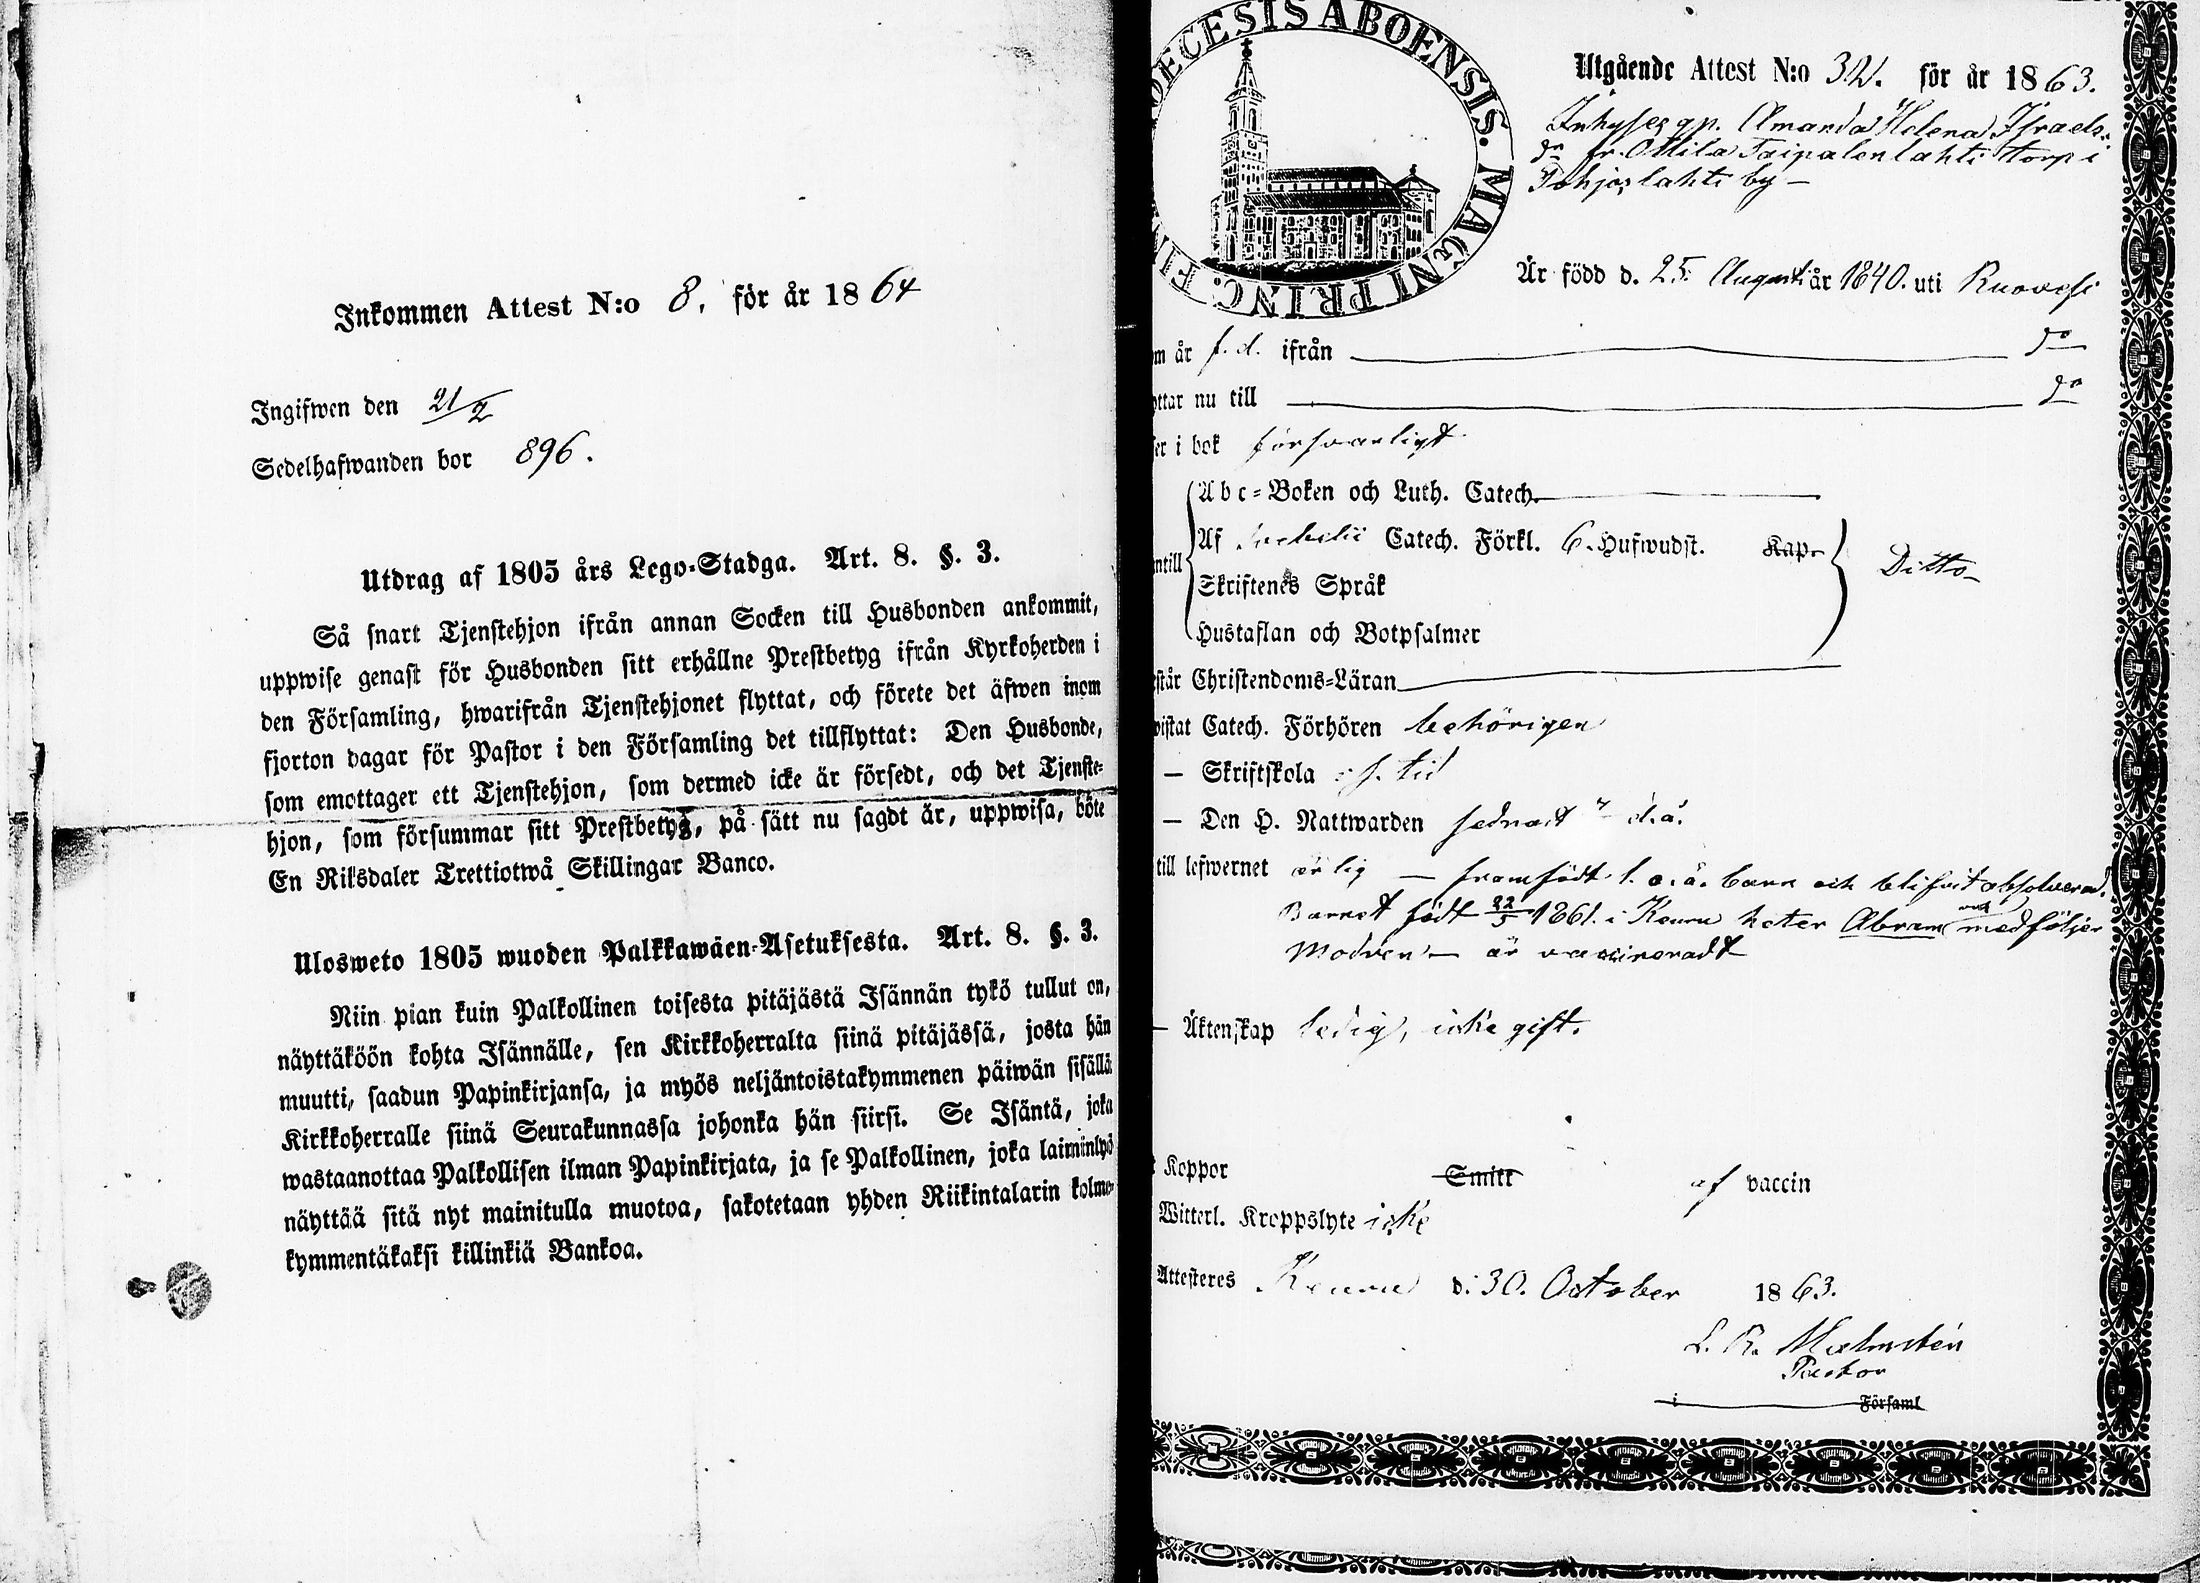 Inkommen Attest N:o 8. för år 1864
Ingifwen den 21/2
Sedelhafwanden bor 896.
Utdrag af 1805 års Lego-Stadga. Art. 8. §. 3.
Så snart Tjenstehjon ifrån annan Socken till Husbonden ankommit,
uppwise genast för Husbonden sitt erhållne Prestbetyg ifrån Kyrkoherden i
den Församling, hwarifrån Tjenstehjonet flyttat, och förete det äfwen inom
fjorton dagar för Pastor i den Församling det tillflyttat: Den Husbonde,
som emottager ett Tjenstehjon, som dermed icke är försedt, och det Tjenste-
hjon, som försummar sitt Prestbetyg, på sätt nu sagdt är, uppwisa, böte
En Riksdaler Trettiotwå Skillingar Banco.
Ulosweto 1805 wuoden Palkkawäen-Asetuksesta. Art. 8. §. 3.
Niin pian kuin Palkollinen toisesta pitäjästä Isännän tykö tullut on,
näyttäköön kohta Isännälle, sen Kirkkoherralta siinä pitäjässä, josta hän
muutti, saadun Papinkirjansa, ja myös neljäntoistakymmenen päiwän sisällä
Kirkkoherralle siinä Seurakunnassa johonka hän siirsi. Se Isäntä, joka
wastaanottaa Palkollisen ilman Papinkirjata, ja se Palkollinen, joka laiminlyö
näyttää sitä nyt mainitulla muotoa, sakotetaan yhden Riikintalarin kolme-
kymmentäkaksi killinkiä Bankoa.
DECESIS ABOENSIS. MAGNI PRINC. FIN
Utgående Attest N:o 32. för år 1863.
Inhyses qp. Amanda Helena Israels-
dr fr. Ottila Taipalenlahti torp i
Pohjoslahti by —
Är född d. 25 Augusti år 1840. uti Ruovesi
m år f. d. ifrån do
ttar nu till do
er i bok försvarligt
Abc-Boken och Luth. Catech.
Af Catech. Förkl. 6. Hufwudst. Kap.
ntill Skriftenes Språk Ditto
Hustaflan och Botpsalmer
står Christendoms-Läran
wistat Catech. Förhören behörigen
— Skriftskola tid
— Den H. Nattwarden sednast d. å.
till lefwernet ärlig — framfödt l. o. ä. barn och blifvit absolverad.
Barnet födt 22/5 1861. i Keuru heter Abram medföljer
Modren — är vaccineradt
— Äktenskap ledig, icke gift.
Koppor Smitt af vaccin
Witterl. Kroppslyte icke
Attesteres Keuru d. 30. October 1863.
L. R. Malmstén
Pastor
i Församl